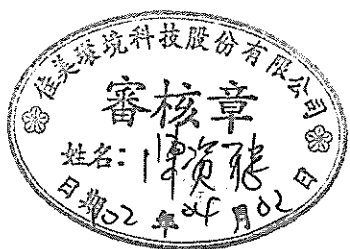 佳美環境科技股份有限公司
審核章
姓名: 陳資
日期102年04月02日